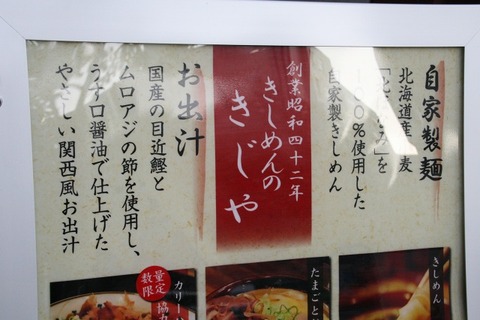 自家製麺
北海道産小麦
100%使用した
自家製きしめん
創業昭和四十二年
きしめんの
きじや
お出汁
国産の目近鰹と
ムロアジの節を使用し、
うす口醤油で仕上げた
やさしい関西風お出汁
きしめん
たまごと
カリー
数量
限定